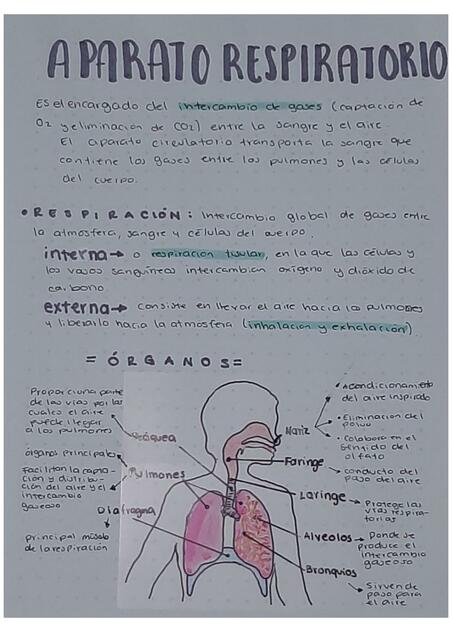 APARATO RESPIRATORIO
Es el encargado del intercambio de gases (captación de
O2 y eliminación de CO2) entre la sangre y el aire.
El aparato circulatorio transporta la sangre que
contiene los gases entre los pulmones y las células
del cuerpo.
• RESPIRACIÓN: Intercambio global de gases entre
la atmosfera, sangre y células del cuerpo.
interna→ o respiración tisular, en la que las células y
los vasos sanguíneos intercambian oxigeno y dióxido de
carbono.
externa→ consiste en llevar el aire hacia los pulmones
y liberarlo hacia la atmosfera (inhalación y exhalación)
= ÓRGANOS =
Proporciona parte
de las vías por las
cuales el aire
puede llegar
a los pulmones
Tráquea
órganos principales
Facilitan la
ción y distribu-
ción del aire y el
intercambio
gaseoso
Pulmones
Diafragma
principal
de la respiración
Nariz
• Acondicionamiento
del aire inspirado
• Eliminación del
polvo
• Colabora en el
sentido del
olfato
Faringe
conducto del
paso del aire
Laringe
Protege las
vías respira-
torias
Alveolos
Donde se
produce el
intercambio
gaseoso
Bronquios
Sirven de
paso para
el aire